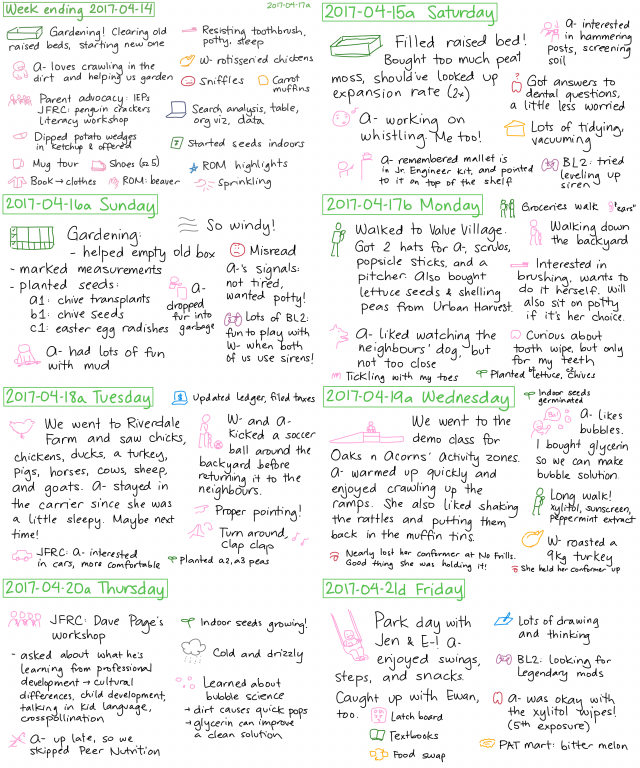 Week ending 2017-04-14
2017-04-17a
Gardening! Clearing old
raised beds, starting new one
A- loves crawling in the
dirt and helping us garden
Parent advocacy: IEPs
JFRC: penguin crackers
Literacy workshop
Dipped potato wedges
in ketchup & offered
Mug tour
Shoes (sz 5)
Book → clothes
ROM: beaver
Resisting toothbrush,
potty, sleep
W- rotisseried chickens
Sniffles
Carrot
muffins
Search analysis, table,
org viz, data
Started seeds indoors
ROM highlights
Sprinkling
2017-04-15a Saturday
Filled raised bed!
Bought too much peat
moss, should've looked up
expansion rate (2x)
A- working on
whistling. Me too!
A- remembered mallet is
in Jr. Engineer kit, and pointed
to it on top of the shelf
A- interested
in hammering
posts, screening
soil
Got answers to
dental questions,
a little less worried
Lots of tidying,
vacuuming
BL2: tried
leveling up
siren
2017-04-16a Sunday
Gardening:
- helped empty old box
- marked measurements
- planted seeds:
a1: chive transplants
b1: chive seeds
c1: easter egg radishes
A- had lots of fun
with mud
So windy!
A-
dropped
fur into
garbage
Misread
A-'s signals:
not tired,
wanted potty!
Lots of BL2:
fun to play with
W- when both
of us use sirens!
2017-04-17b Monday
Walked to Value Village.
Got 2 hats for A-, scrubs,
popsicle sticks, and a
pitcher. Also bought
lettuce seeds & shelling
peas from Urban Harvest.
A- liked watching the
neighbours' dog, but
not too close
Tickling with my toes
Groceries walk
"ears"
Walking down
the backyard
Interested in
brushing, wants to
do it herself. Will
also sit on potty
if it's her choice.
Curious about
tooth wipe, but only
for my teeth
Planted b1 lettuce, c2 chives
2017-04-18a Tuesday
We went to Riverdale
Farm and saw chicks,
chickens, ducks, a turkey,
pigs, horses, cows, sheep,
and goats. A- stayed in
the carrier since she was
a little sleepy. Maybe next
time!
JFRC: A- interested
in cars, more comfortable
Updated ledger, filed taxes
W- and A-
kicked a soccer
ball around the
backyard before
returning it to the
neighbours.
Proper pointing!
Turn around,
clap clap
Planted a2, a3 peas
2017-04-19a Wednesday
We went to the
demo class for
Oaks n Acorns' activity zones.
A- warmed up quickly and
enjoyed crawling up the
ramps. She also liked shaking
the rattles and putting them
back in the muffin tins.
Nearly lost her conformer at No Frills.
Good thing she was holding it!
Indoor seeds
germinated
A- likes
bubbles.
I bought glycerin
so we can make
bubble solution.
Long walk!
xylitol, sunscreen,
peppermint extract
W- roasted a
9kg turkey
She held her conformer up
2017-04-20a Thursday
JFRC: Dave Page's
workshop
- asked about what he's
learning from professional
development → cultural
differences, child development,
talking in kid language,
crosspollination
A- up late, so we
skipped Peer Nutrition
Indoor seeds growing!
Cold and drizzly
Learned about
bubble science
→ dirt causes quick pops
→ glycerin can improve
a clean solution
2017-04-21d Friday
Park day with
Jen & E-! A-
enjoyed swings,
steps, and snacks.
Caught up with Ewan,
too.
Latch board
Textbooks
Food swap
Lots of drawing
and thinking
BL2: looking for
Legendary mods
A- was okay with
the xylitol wipes!
(5th exposure)
PAT mart: bitter melon